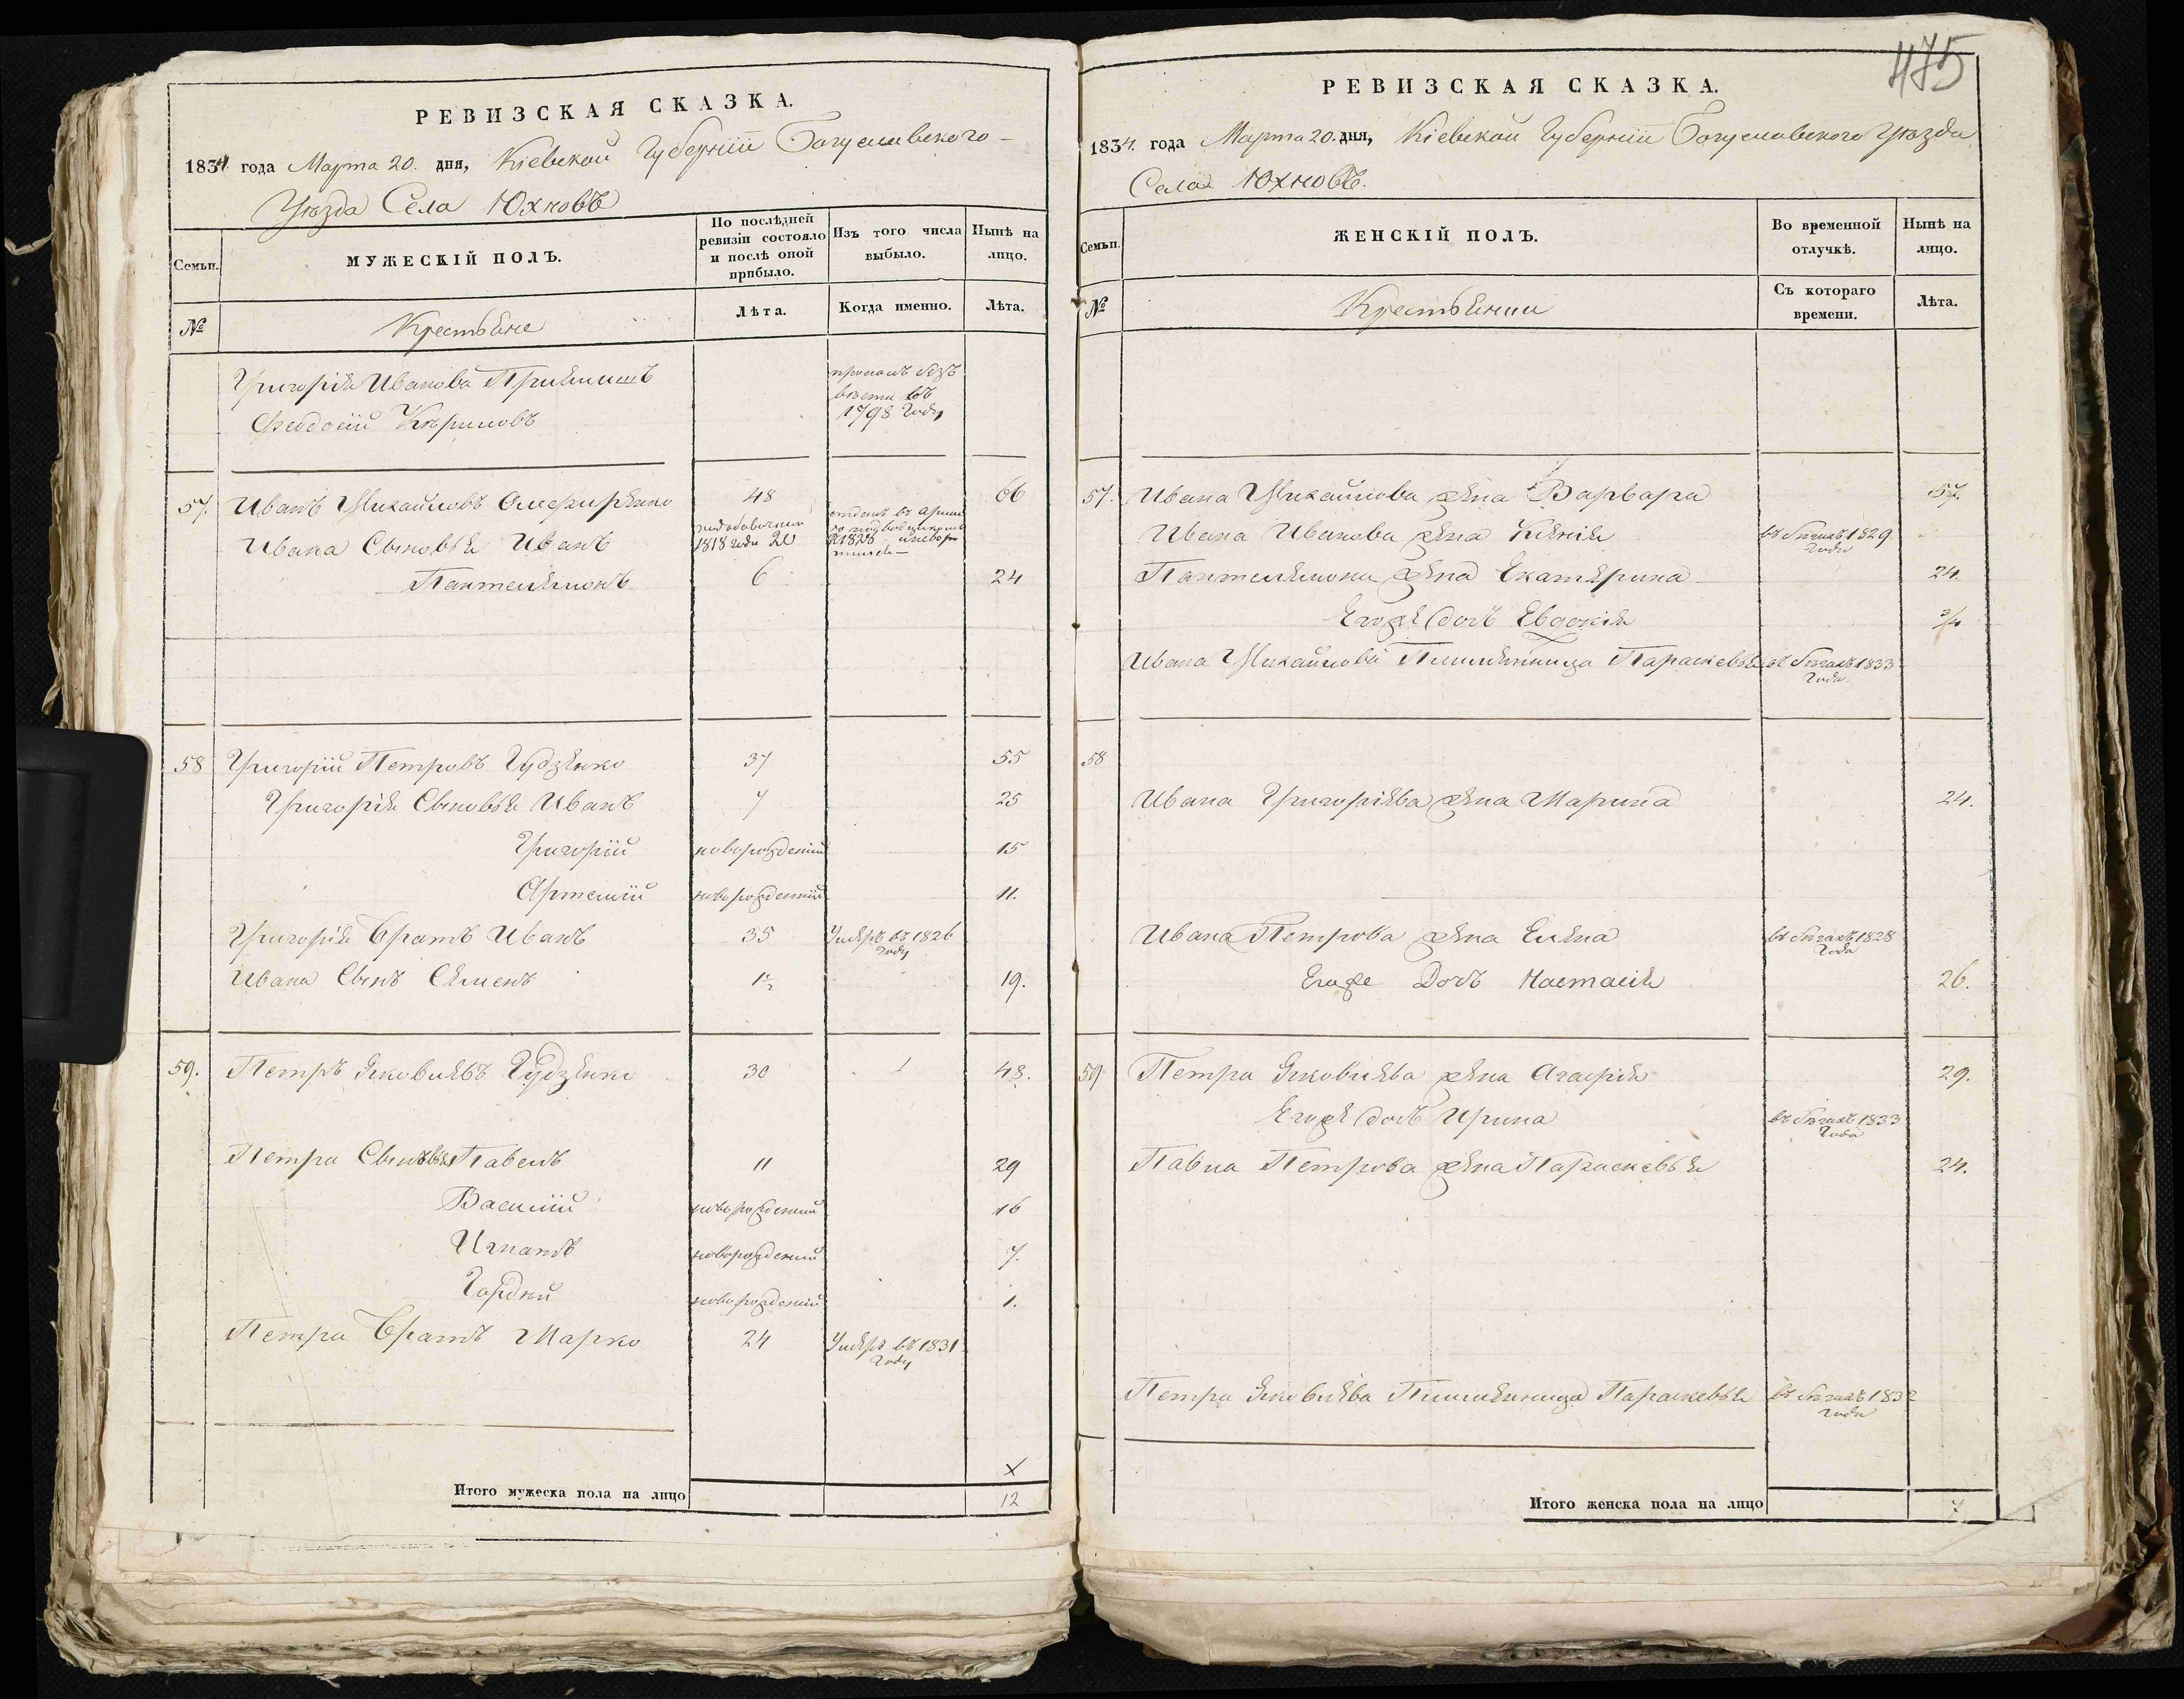 РЕВИЗСКАЯ СКАЗКА.
1834 года Марта 20. дня, Кіевской Губерніи Богуславского
Уѣзда Села Юхновъ
Семьи.
МУЖЕСКІЙ ПОЛЪ.
По послѣдней ревизіи состояло и послѣ оной прибыло.
Изъ того числа выбыло.
Нынѣ на лицо.
№
Крестьяне
Лѣта.
Когда именно.
Лѣта.
Григорія Иванова
въ 1798 Году
Феодосій
57. Иванъ Михайловъ 48 66
Ивана Сыновья Иванъ 1818 года 20 1828
Пантелемонъ 6 24
58 Григорій Петровъ Гудзенко 37 55
Григорія Сыновья Иванъ 7 25
Григорій новорожденій 15
Артемій новорожденій 11.
Григорія Братъ Иванъ 35 Умеръ въ 1826 Году
Ивана Сынъ Семенъ 1½ 19.
59. Петръ Яковлевъ Гудзенко 30 48.
Петра Сыновья Павелъ 11 29
Василій новорожденій 16
Игнатъ новорожденій 7.
Гордѣй новорожденій 1.
Петра Братъ Марко 24 Умеръ въ 1831 Году
Итого мужеска пола на лицо 12
475
РЕВИЗСКАЯ СКАЗКА.
1834. года Марта 20. дня, Кіевской Губерніи Богуславского Уѣзда
Села Юхновъ.
Семьи.
ЖЕНСКІЙ ПОЛЪ.
Во временной отлучкѣ.
Нынѣ на лицо.
№
Крестьянки
Съ котораго времени.
Лѣта.
57. Ивана Михайлова жена Варвара 57.
Ивана Иванова жена Ксенія въ бѣгахъ 1829 года
Пантелемона жена Екатерина 24
Егоже дочь Евдокія ¾
Ивана Михайлова Племянница Параскевья въ бѣгахъ 1833 Года
58
Ивана Григоріева жена Марина 24.
Ивана Петрова жена Елена въ бѣгахъ 1828 Года
Егоже Дочь Настасія 26.
59 Петра Яковлева жена Агафія 29.
Егоже дочь Ирина въ бѣгахъ 1833 Года
Павла Петрова жена Параскевья 24.
Петра Яковлева Племянница Параскевья въ бѣгахъ 1832 года
Итого женска пола на лицо 7